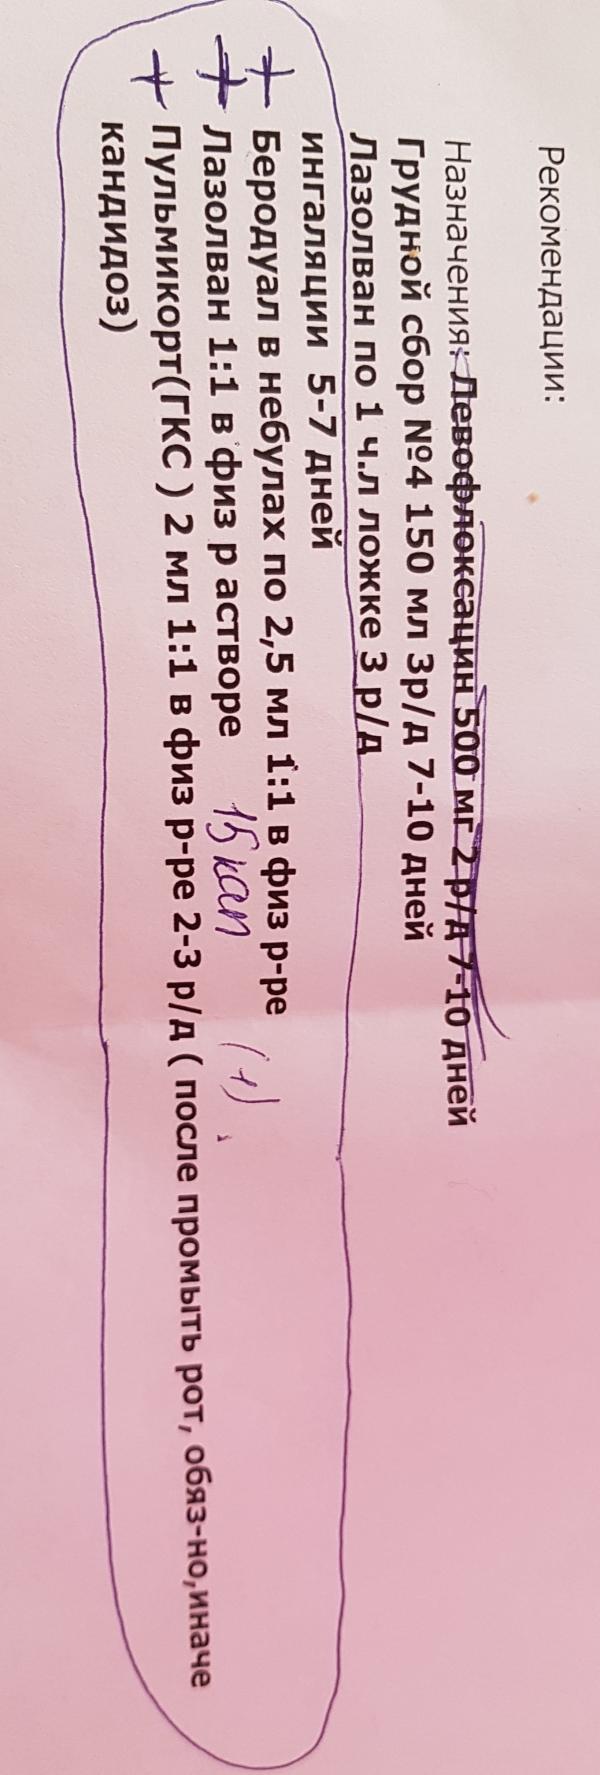 Рекомендации:
Назначения: Левофлоксацин 500 мг 2 р/д 7-10 дней
Грудной сбор №4 150 мл 3р/д 7-10 дней
Лазолван по 1 ч.л ложке 3 р/д
ингаляции 5-7 дней
+ Беродуал в небулах по 2,5 мл 1:1 в физ р-ре
+ Лазолван 1:1 в физ р астворе 15 кап (+).
+ Пульмикорт(ГКС ) 2 мл 1:1 в физ р-ре 2-3 р/д ( после промыть рот, обяз-но,иначе
кандидоз)